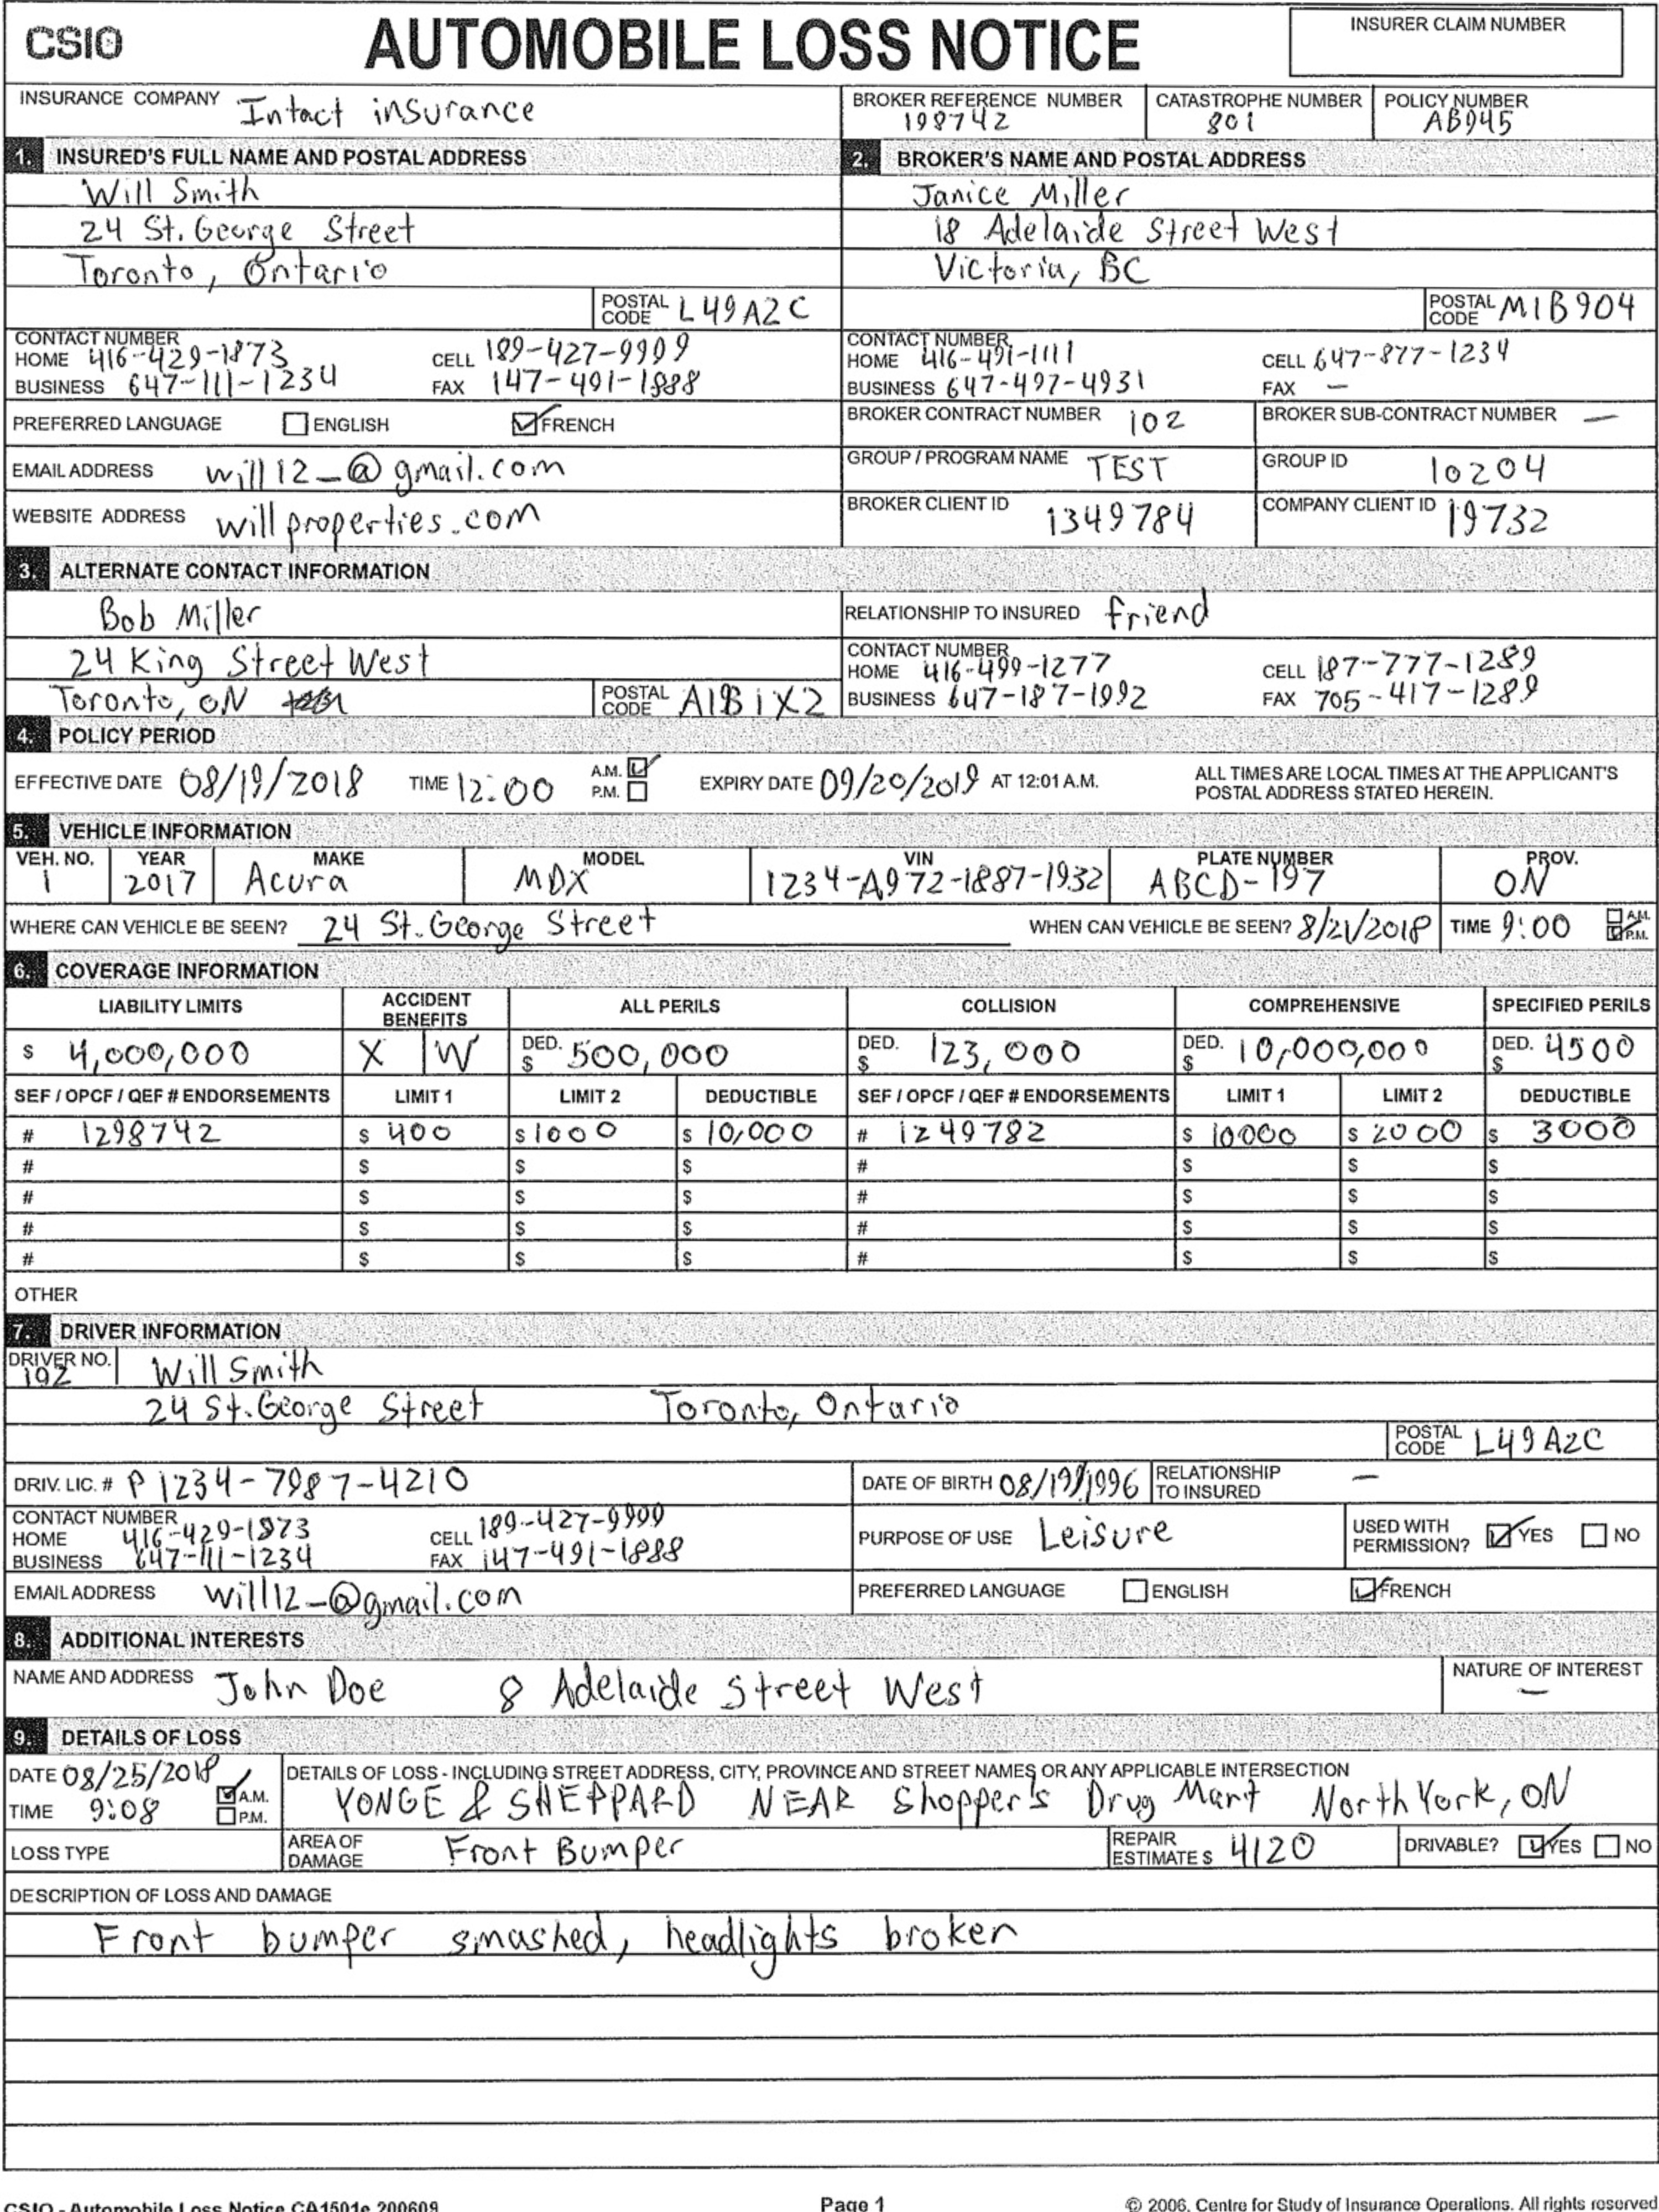 CSIO
AUTOMOBILE LOSS NOTICE
INSURER CLAIM NUMBER
INSURANCE COMPANY Intact insurance
BROKER REFERENCE NUMBER 198742
CATASTROPHE NUMBER 801
POLICY NUMBER AB945
1. INSURED'S FULL NAME AND POSTAL ADDRESS
Will Smith
24 St. George Street
Toronto, Ontario
POSTAL CODE L49A2C
CONTACT NUMBER
HOME 416-429-1873 CELL 189-427-9999
BUSINESS 647-111-1234 FAX 147-491-1888
PREFERRED LANGUAGE ENGLISH FRENCH
EMAIL ADDRESS will12_@gmail.com
WEBSITE ADDRESS willproperties.com
2. BROKER'S NAME AND POSTAL ADDRESS
Janice Miller
18 Adelaide Street West
Victoria, BC
POSTAL CODE M1B904
CONTACT NUMBER
HOME 416-491-1111 CELL 647-877-1234
BUSINESS 647-497-4931 FAX –
BROKER CONTRACT NUMBER 102 BROKER SUB-CONTRACT NUMBER –
GROUP / PROGRAM NAME TEST GROUP ID 10204
BROKER CLIENT ID 1349784 COMPANY CLIENT ID 19732
3. ALTERNATE CONTACT INFORMATION
Bob Miller
24 King Street West
Toronto, ON
POSTAL CODE A1B1X2
RELATIONSHIP TO INSURED friend
CONTACT NUMBER
HOME 416-499-1277 CELL 187-777-1289
BUSINESS 647-187-1992 FAX 705-417-1289
4. POLICY PERIOD
EFFECTIVE DATE 08/19/2018 TIME 12:00 A.M. P.M. EXPIRY DATE 09/20/2019 AT 12:01 A.M.
ALL TIMES ARE LOCAL TIMES AT THE APPLICANT'S
POSTAL ADDRESS STATED HEREIN.
5. VEHICLE INFORMATION
VEH. NO. YEAR MAKE MODEL VIN PLATE NUMBER PROV.
1 2017 Acura MDX 1234-A972-1887-1932 ABCD-197 ON
WHERE CAN VEHICLE BE SEEN? 24 St. George Street WHEN CAN VEHICLE BE SEEN? 8/21/2018 TIME 9:00 A.M. P.M.
6. COVERAGE INFORMATION
LIABILITY LIMITS ACCIDENT BENEFITS ALL PERILS COLLISION COMPREHENSIVE SPECIFIED PERILS
$ 4,000,000 X W DED. $ 500,000 DED. $ 123,000 DED. $ 10,000,000 DED. $ 4500
SEF / OPCF / QEF # ENDORSEMENTS LIMIT 1 LIMIT 2 DEDUCTIBLE SEF / OPCF / QEF # ENDORSEMENTS LIMIT 1 LIMIT 2 DEDUCTIBLE
# 1298742 $ 400 $ 1000 $ 10,000 # 1249782 $ 10000 $ 2000 $ 3000
# $ $ $ # $ $ $
# $ $ $ # $ $ $
# $ $ $ # $ $ $
# $ $ $ # $ $ $
OTHER
7. DRIVER INFORMATION
DRIVER NO. 192 Will Smith
24 St. George Street Toronto, Ontario
POSTAL CODE L49A2C
DRIV. LIC. # P1234-7987-4210 DATE OF BIRTH 08/19/1996 RELATIONSHIP TO INSURED –
CONTACT NUMBER
HOME 416-429-1873 CELL 189-427-9999
BUSINESS 647-111-1234 FAX 147-491-1888
PURPOSE OF USE Leisure USED WITH PERMISSION? YES NO
EMAIL ADDRESS will12_@gmail.com PREFERRED LANGUAGE ENGLISH FRENCH
8. ADDITIONAL INTERESTS
NAME AND ADDRESS John Doe 8 Adelaide Street West NATURE OF INTEREST –
9. DETAILS OF LOSS
DATE 08/25/2018
TIME 9:08 A.M. P.M.
DETAILS OF LOSS - INCLUDING STREET ADDRESS, CITY, PROVINCE AND STREET NAMES OR ANY APPLICABLE INTERSECTION
YONGE & SHEPPARD NEAR Shopper's Drug Mart North York, ON
LOSS TYPE AREA OF DAMAGE Front Bumper REPAIR ESTIMATE $ 4120 DRIVABLE? YES NO
DESCRIPTION OF LOSS AND DAMAGE
Front bumper smashed, headlights broken
CSIO - Automobile Loss Notice CA1501e 200609 Page 1 © 2006, Centre for Study of Insurance Operations. All rights reserved